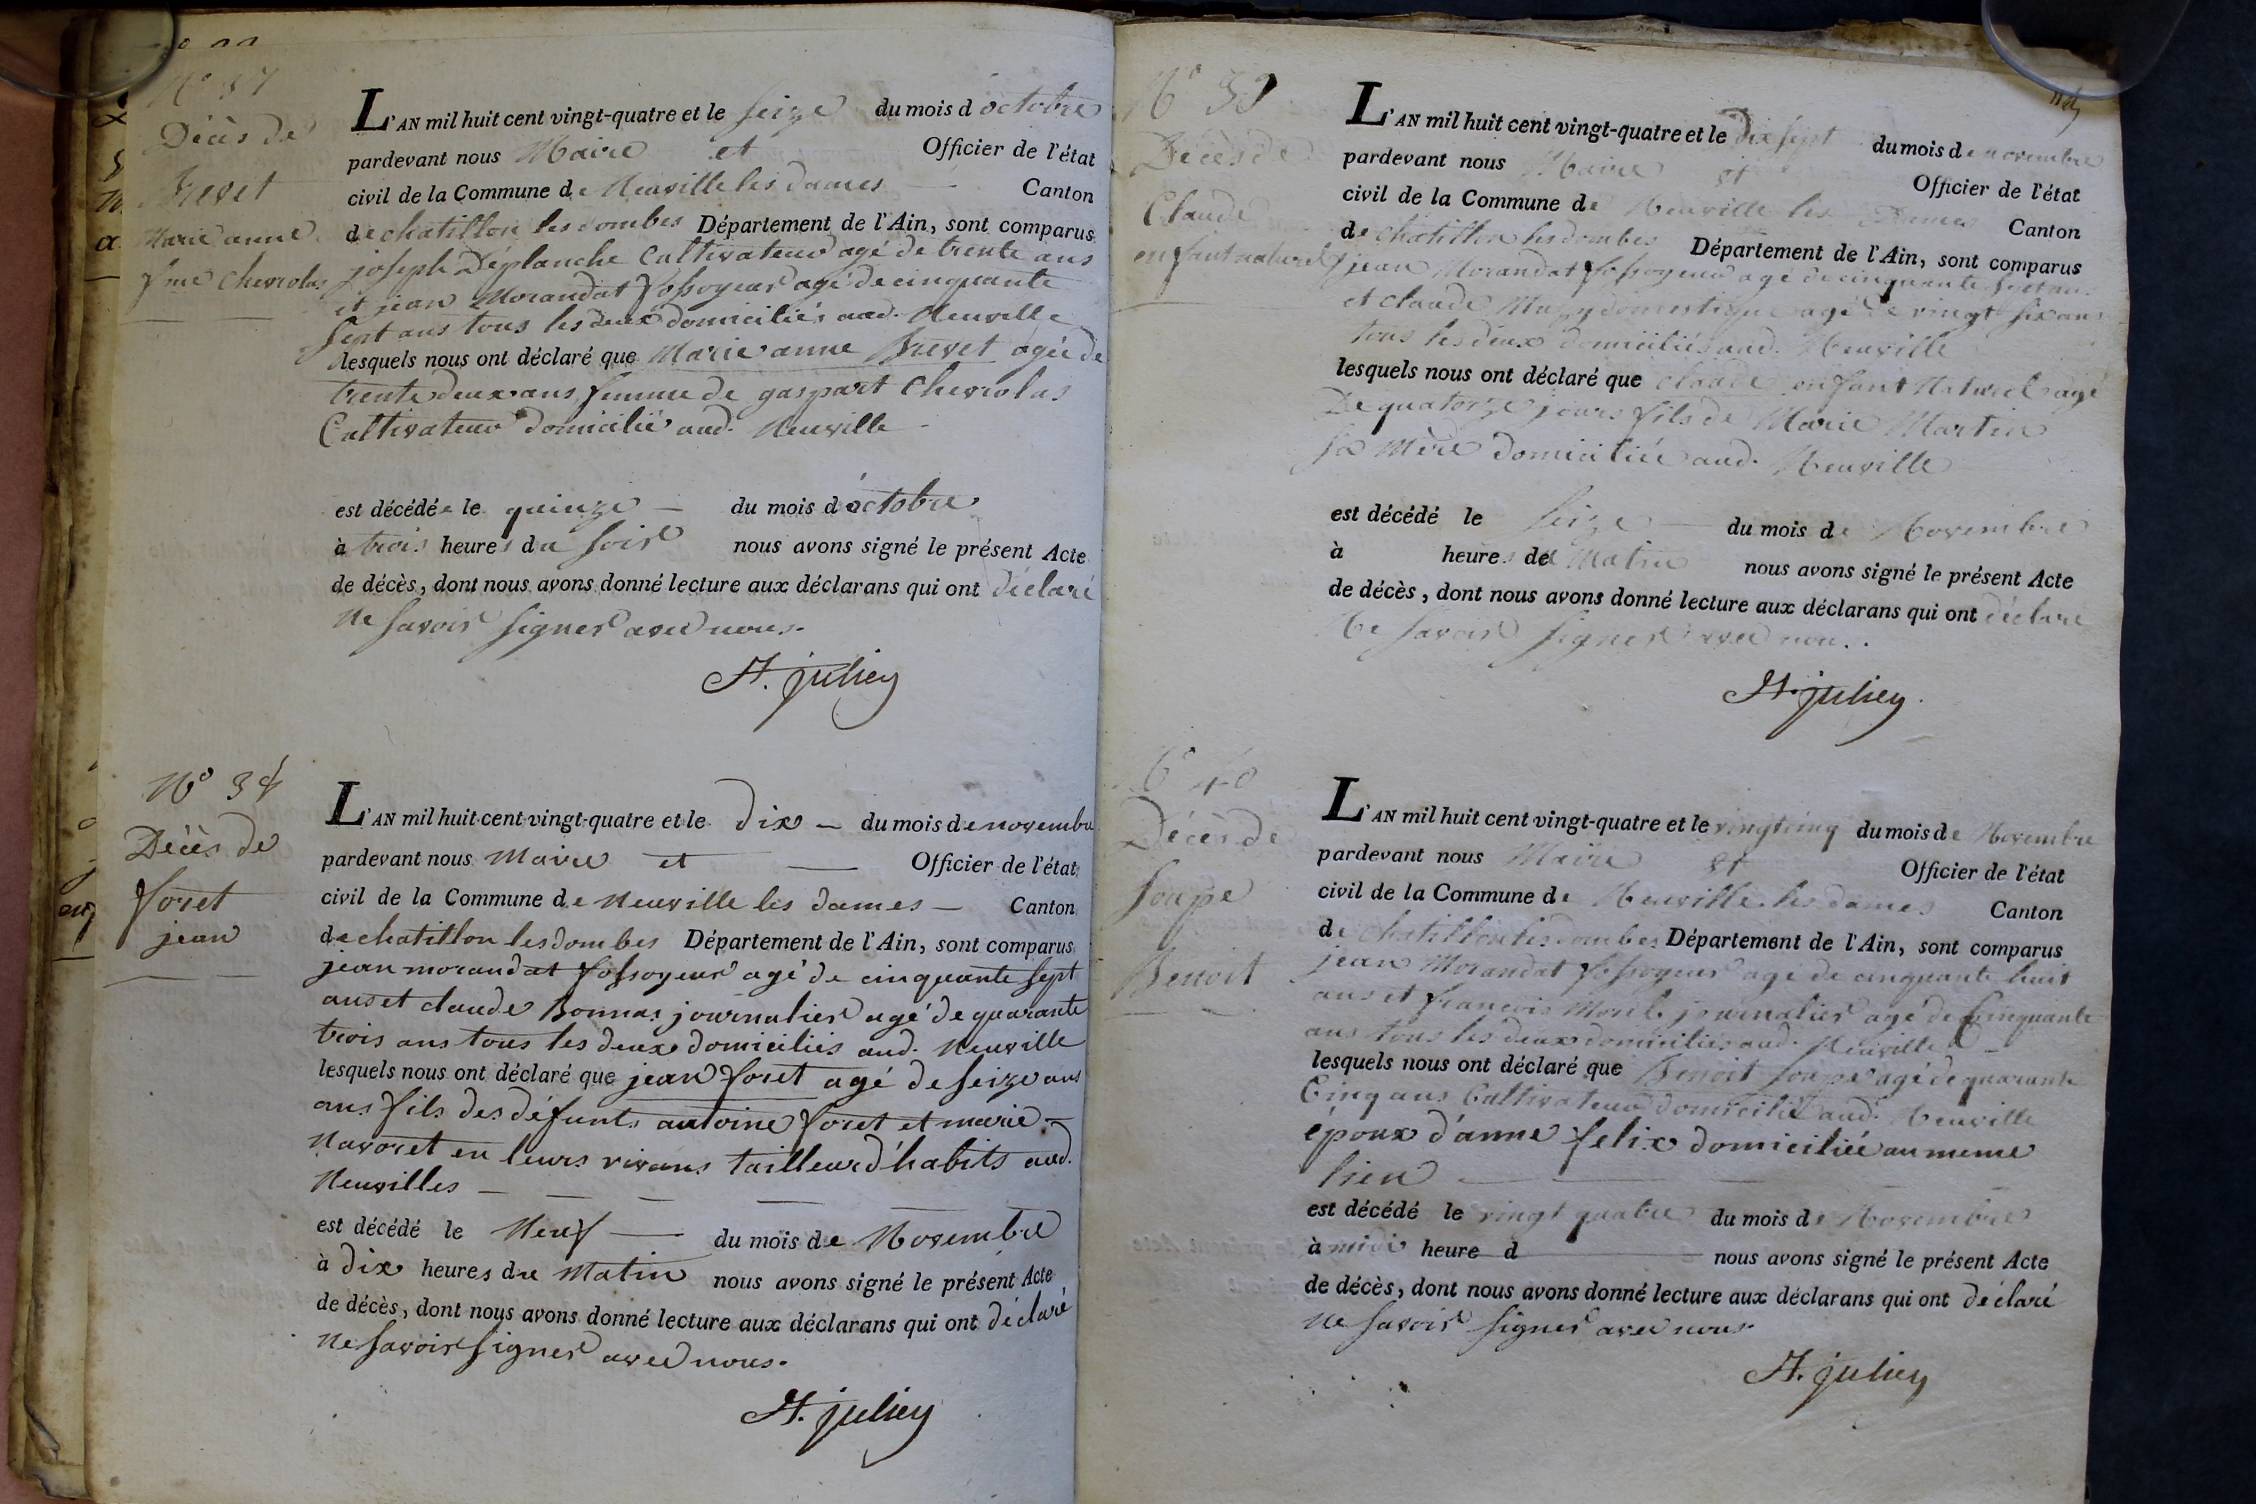 N° 37
Décès de
Brevet
Marie anne
fme Chevrolas
L'AN mil huit cent vingt-quatre et le seize du mois d'octobre
pardevant nous Maire et Officier de l'état
civil de la Commune de Neuville les dames Canton
de chatillon les dombes Département de l'Ain, sont comparus
joseph Déplanche Cultivateur agé de trente ans
et jean Morandat fossoyeur agé de cinquante
sept ans tous les deux domiciliés aud. Neuville
lesquels nous ont déclaré que Marie anne Brevet agée de
trente deux ans femme de gaspart Chevrolas
Cultivateur domicilié aud. Neuville
est décédée le quinze du mois d'octobre
à trois heures du soir nous avons signé le présent Acte
de décès, dont nous avons donné lecture aux déclarans qui ont déclaré
Ne savoir signer avec nous.
H. juliey
N° 38
Décès de
foret
jean
L'AN mil huit cent vingt-quatre et le dix du mois de novembre
pardevant nous Maire et Officier de l'état
civil de la Commune de Neuville les dames Canton
de chatillon les dombes Département de l'Ain, sont comparus
jean morandat fossoyeur agé de cinquante sept
ans et claude Bonnas journalier agé de quarante
trois ans tous les deux domiciliés aud. Neuville
lesquels nous ont déclaré que jean foret agé de seize ans
ans fils des défunts antoine foret et marie
Navoret en leurs vivans tailleur d'habits aud.
Neuvilles
est décédé le Neuf du mois de Novembre
à dix heures du Matin nous avons signé le présent Acte
de décès, dont nous avons donné lecture aux déclarans qui ont déclaré
Ne savoir signer avec nous.
H. juliey
N° 39
Décès de
Claude
enfant naturel
L'AN mil huit cent vingt-quatre et le Dix sept du mois de novembre
pardevant nous Maire et Officier de l'état
civil de la Commune de Neuville les Dames Canton
de chatillon les dombes Département de l'Ain, sont comparus
jean Morandat fossoyeur agé de cinquante sept ans
et claude domestique agé de vingt six ans
tous les deux domiciliés aud. Neuville
lesquels nous ont déclaré que claude enfant Naturel agé
De quatorze jours fils de Marie Martin
sa Mère domiciliée aud. Neuville
est décédé le seize du mois de Novembre
à heures du Matin nous avons signé le présent Acte
de décès, dont nous avons donné lecture aux déclarans qui ont déclaré
Ne savoir signer avec nous.
H. juliey.
N° 40
Décès de
Soupe
Benoit
L'AN mil huit cent vingt-quatre et le vingt cinq du mois de Novembre
pardevant nous Maire et Officier de l'état
civil de la Commune de Neuville les dames Canton
de chatillon les dombes Département de l'Ain, sont comparus
jean Morandat fossoyeur agé de cinquante huit
ans et francois journalier agé de Cinquante
ans tous les deux domiciliés aud. Neuville
lesquels nous ont déclaré que Benoit Soupe agé de quarante
Cinq ans Cultivateur domicilié aud. Neuville
époux d'anne felix domiciliée au meme
lieu
est décédé le vingt quatre du mois de Novembre
à midi heure d nous avons signé le présent Acte
de décès, dont nous avons donné lecture aux déclarans qui ont déclaré
Ne savoir signer avec nous.
H. juliey